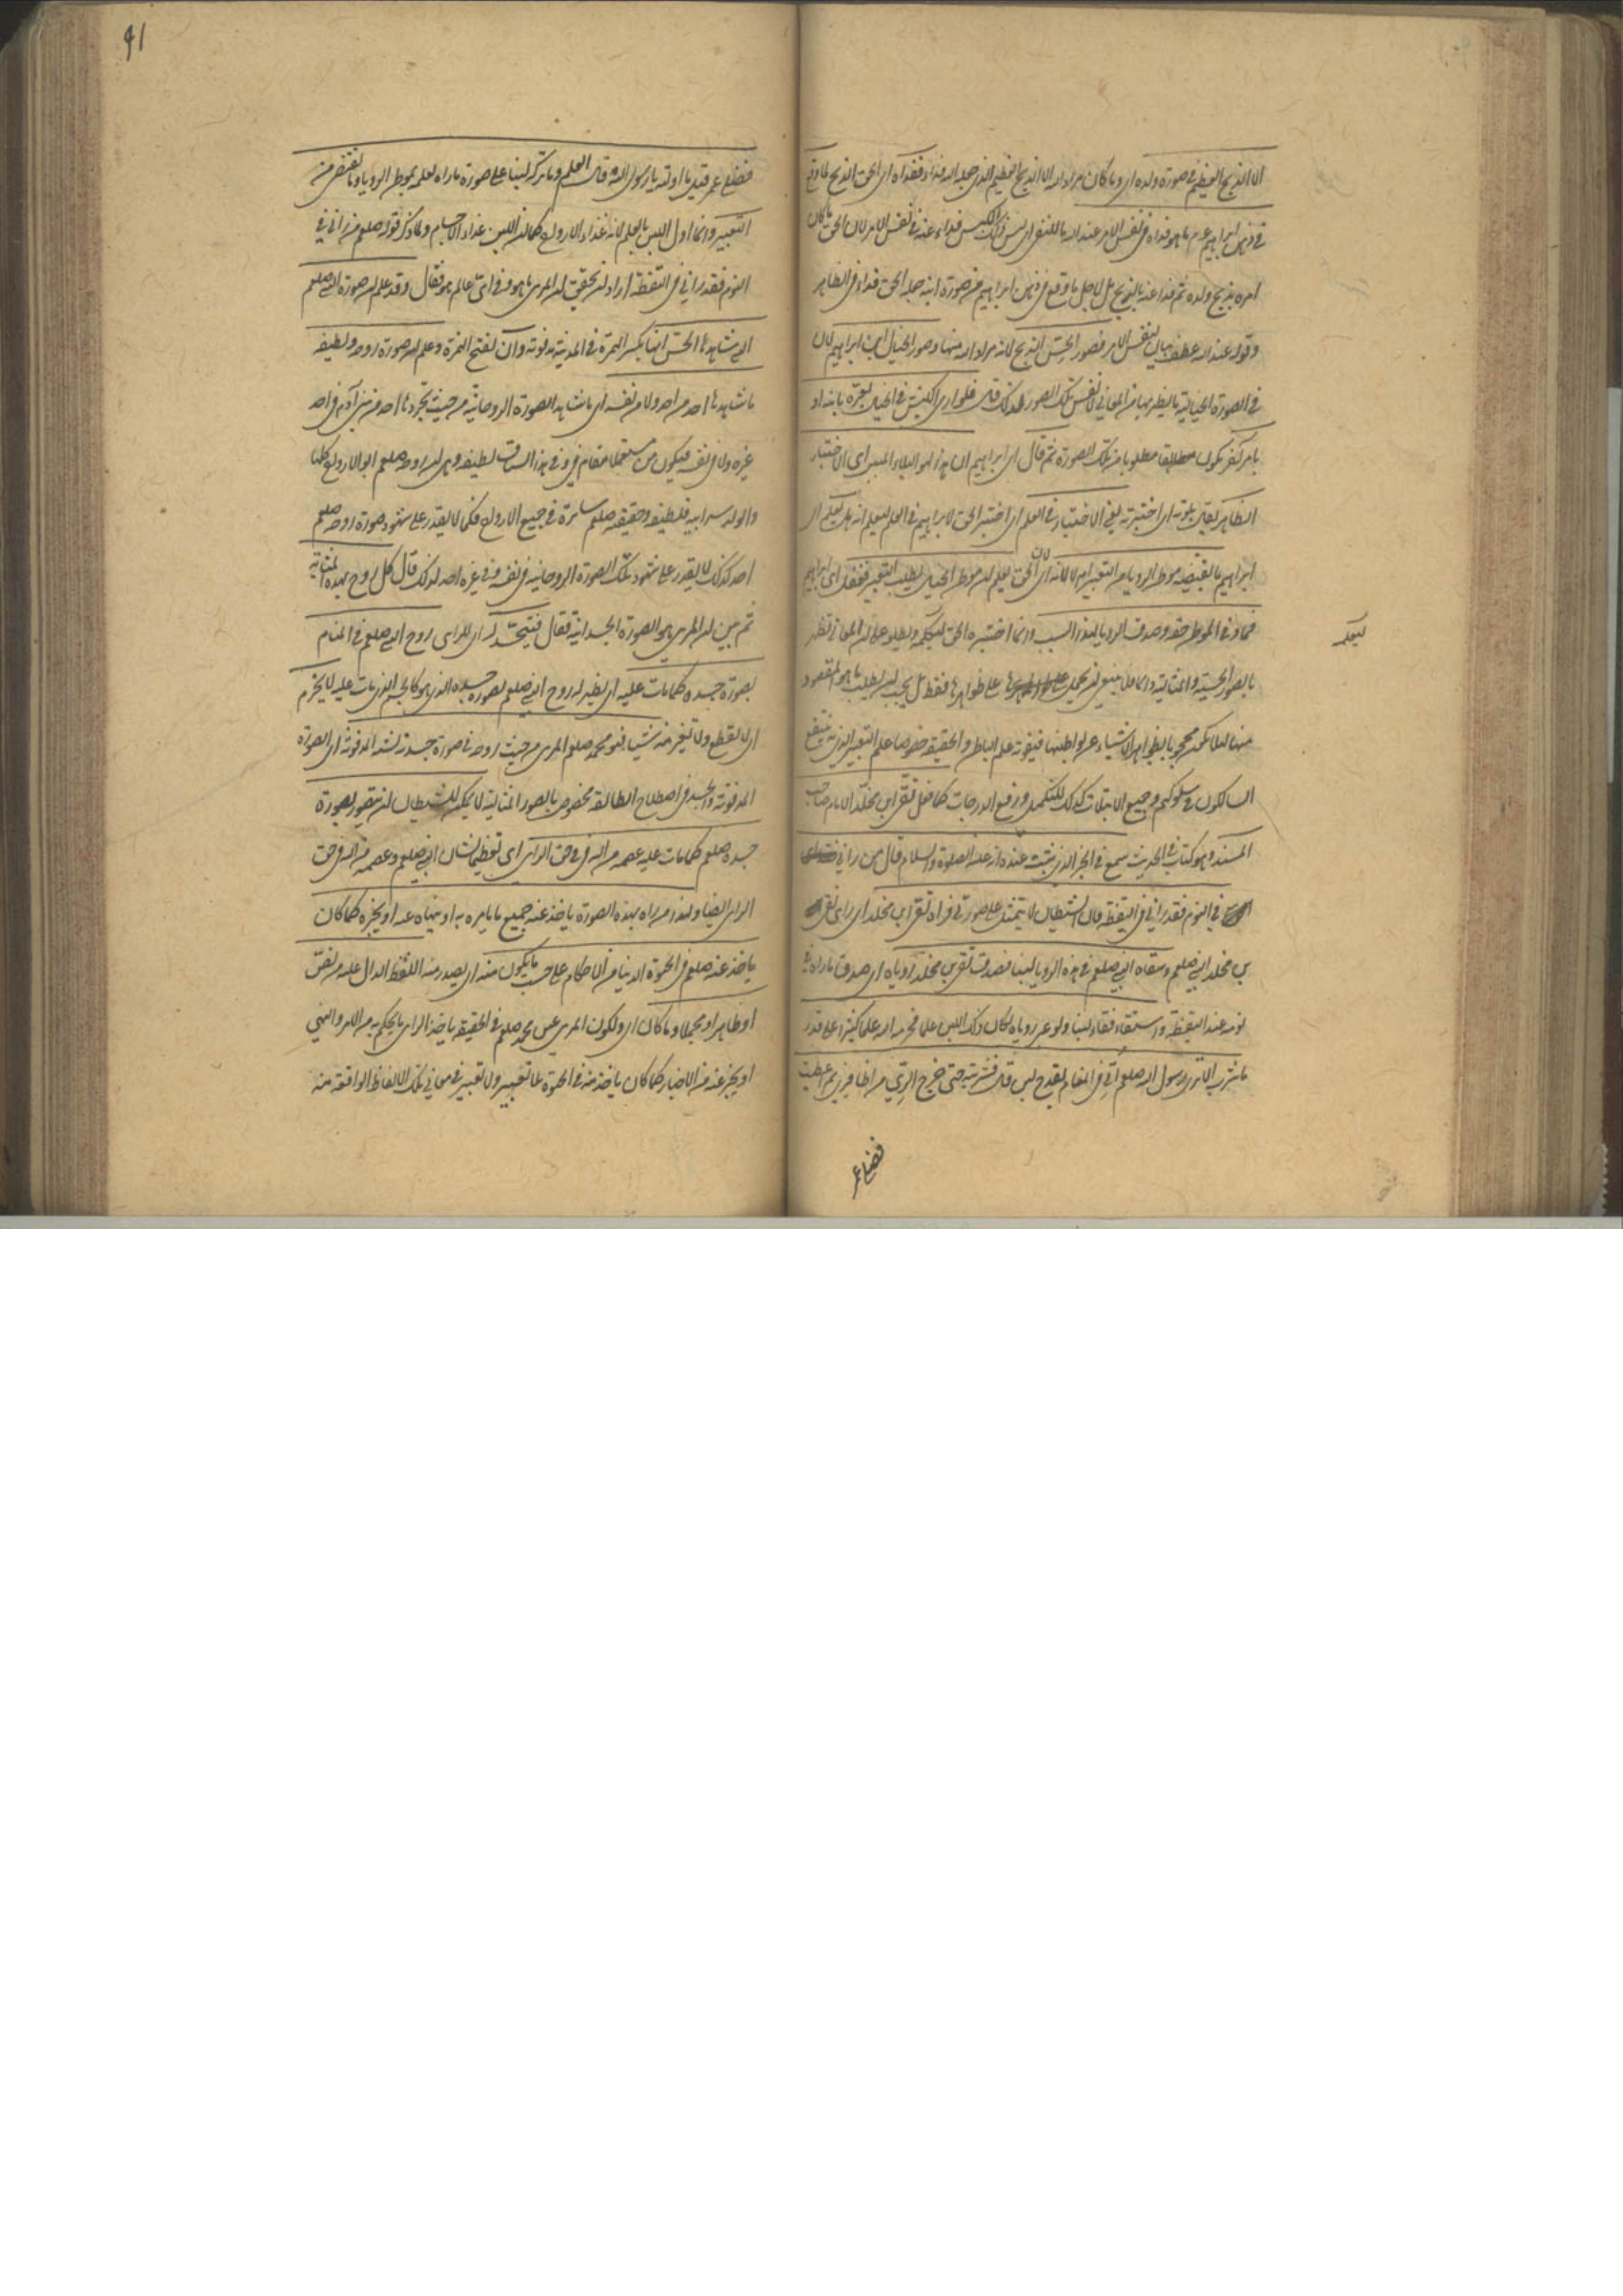 الا الذبح العظيم في صورة ولده اى وما كان مراد الله الا الذبح العظيم الذى جعله الله فداء ففداه اى الحق الذبح لما وقع
في ذهن ابراهيم عم ما هو فداء في نفس الامر عند الله بالنفي اى ليس ذلك الكبش فداء عنه في نفس الامر لان الحق ما كان
امره بذبح ولده ثم فداه عنه بالذبح بل لاجل ما وقع في ذهن ابراهيم من صورة ابنه جعله الحق فداء في الظاهر
وقوله عند الله عطف بيان لنفس الامر فصور الحس الذبح لانه مراد الله منها وصور الخيال ابن ابراهيم لان
في الصورة الخيالية ما يظهر بها من المعاني لا نفس تلك الصور لذلك قال فلو راى الكبش في الخيال لعبره بابنه او
بامر آخر يكون مطلوبا من تلك الصورة ثم قال اى ابراهيم ان هذا لهو البلاء المبين اى الاختبار
الظاهر يقال بلوته اى اختبرته يعني الاختبار في العلم اى اختبر الحق لابراهيم في العلم ليعلم انه هل يعلم اى
ابراهيم ما يقتضيه موطن الرؤيا من التعبير ام لا لانه اى لان الحق يعلم ان موطن الخيال يطلب التعبير فغفل اى ابراهيم
فما وفى الموطن حقه وصدق الرؤيا لهذا السبب وانما اختبره الحق ليكمله ويطلع على ان المعاني تظهر
ليكمله
بالصور الحسية والمثالية والكامل ينبغي ان يحمل على ظواهرها فقط بل يجب ان يطلب ما هو المقصود
منها لئلا يكون محجوبا بظواهر الاشياء عن بواطنها فيفوته علم الباطن والحقيقة خصوصا علم التعبير الذى به ينتفع
السالكون في سلوكهم وجميع الابتلاآت كذلك للتكميل ورفع الدرجات كما فعل تقي ابن مخلد الامام صاحب
المسند وهو كتاب في الحديث سمع في الخبر الذى ثبت عنده انه عليه الصلوة والسلام قال من راني
في النوم فقد راني في اليقظة فان الشيطان لا يتمثل على صورتي فراه تقي ابن مخلد اى راى تقي
بن مخلد النبي صلعم وسقاه النبي صلعم في هذه الرؤيا لبنا فصدق تقي بن مخلد رؤياه اى صدق ما راه في
نومه عند اليقظة واستقاء فقاء لبنا ولو عبر رؤياه لكان ذلك اللبن علما فحرمه الله علما كثيرا على قدر
ما شرب الا ترى رسول الله صلعم اتي في المنام بقدح لبن قال فشربته حتى خرج الري من اظافيري ثم اعطيت
فضلي عمر
91
فضلي عمر قيل ما اولته يا رسول الله قال العلم وما تركه لبنا على صورة ما راه لعلمه بموطن الرؤيا وما تقتضي من
التعبير وانما اول اللبن بالعلم لانه غذاء الارواح كما ان اللبن غذاء الاجسام ولما ذكر قوله صلعم من راني في
النوم فقد راني في اليقظة اراد ان يحقق ان المرئي ما هو وفي اى عالم هو فقال وقد علم ان صورة النبي صلعم
التي شاهدها الحس انها بكسر الهمزة في المدينة مدفونة وان بفتح الهمزة وعلم ان صورة روحه ولطيفه
ما شاهدها احد من احد ولا من نفسه اى ما شاهد الصورة الروحانية من حيث تجردها احد من بني آدم في احد
غيره ولا في نفسه فيكون من مستعملا مقام في وفي هذا السياق لطيفه وهى ان روحه صلعم ابو الارواح كلها
والولد سر ابيه فلطيفه وحقيقه صلعم سارية في جميع الارواح فكما لا يقدر على شهود صورة روحه صلعم
احد كذلك لا يقدر على شهود تلك الصورة الروحانية في نفسه وفي غيره احد لذلك قال كل روح بهذه المثابه
ثم بين ان المرئي هى الصورة الجسدانية فقال فتتجسد له اى للرائى روح النبي صلعم في المنام
بصورة جسده كما مات عليه اى يظهر له روح النبي صلعم بصورة جسده الذى هو كالجسم الذى مات عليه لا يخرم
اى لا يقطع ولا يتغير منه شيئا فهو محمد صلعم المرئي من حيث روحه في صورة جسدية تشبه المدفونة اى الصورة
المدفونة والجسد في اصطلاح الطائفة مخصوص بالصور المثالية لا يمكن للشيطان ان يتصور بصورة
جسده صلعم كما مات عليه عصمة من الله في حق الرائى اى تعظيما لشان النبي صلعم وعصمة من الله في حق
الرائى ايضا ولهذا من راه بهذه الصورة ياخذ عنه جميع ما يامره به او ينهاه عنه او يخبره كما كان
ياخذ عنه صلعم في الحيوة الدنيا من الاحكام على حسب ما يكون منه اى يصدر منه اللفظ الدال عليه من نص
او ظاهر او مجمل او ما كان اى ولكون المرئي عين محمد صلعم في الحقيقة ياخذ الرائى ما يحكم به من الامر والنهي
او يخبر عنه من الاخبار كما كان ياخذ منه في الحيوة بلا تعبير ولا تغيير في معاني تلك الالفاظ الواقعة منه